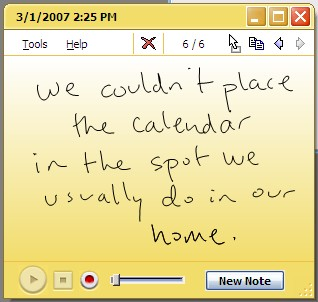 3/1/2007 2:25 PM
Tools Help 6 / 6
we couldn't place
the calendar
in the spot we
usually do in our
home.
New Note